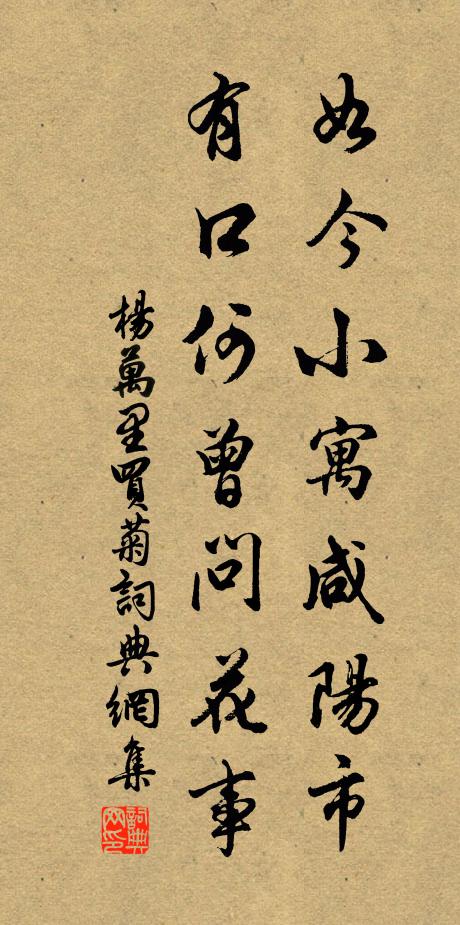 如今小寓咸陽市
有口何曾問花事
楊萬里買菊詞典網集
詞典網印